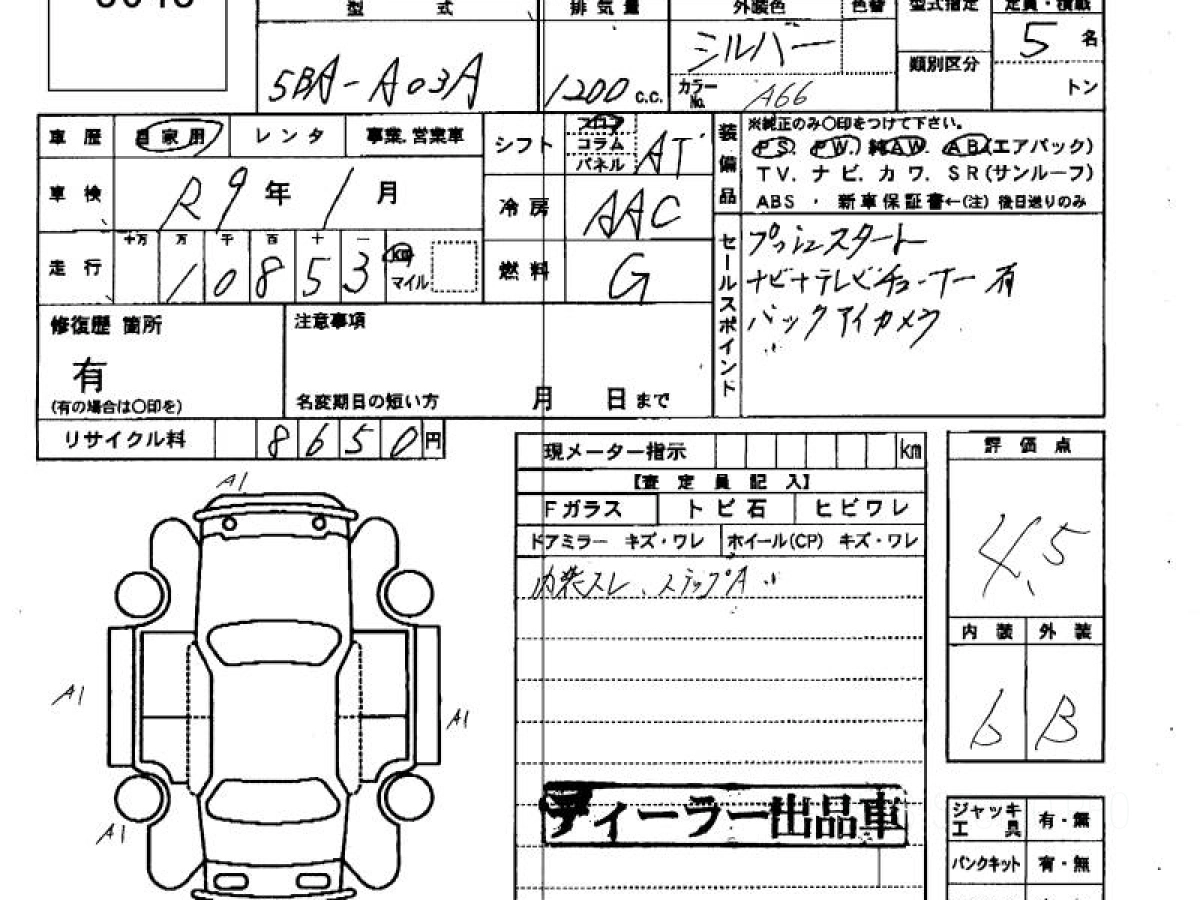 型 式
排気量
外装色
色替
型式指定
定員・積載
5BA-A03A
1200 c.c.
シルバー
カラーNo.
A66
類別区分
5 名
トン
車歴
自家用
レンタ
事業.営業車
シフト
フロア
コラム
パネル
AT
装備品
※純正のみ〇印をつけて下さい。
PS. PW. 純AW. AB(エアバック)
TV. ナビ. カワ. SR(サンルーフ)
ABS . 新車保証書←(注)後日送りのみ
車検
R9年1月
冷房
AAC
走行
十万 万 千 百 十 一
10853
km
マイル
燃料
G
セールスポイント
プッシュスタート
ナビ+テレビチューナー有
バックアイカメラ
修復歴 箇所
有
(有の場合は〇印を)
注意事項
名変期日の短い方 月 日まで
リサイクル料
8650円
現メーター指示 km
【査定員記入】
Fガラス
トビ石
ヒビワレ
ドアミラー キズ・ワレ
ホイール(CP) キズ・ワレ
内装スレ、ステップA
評価点
4.5
内装
外装
b
B
A1
A1
A1
A1
ディーラー出品車
ジャッキ工具
有・無
パンクキット
有・無